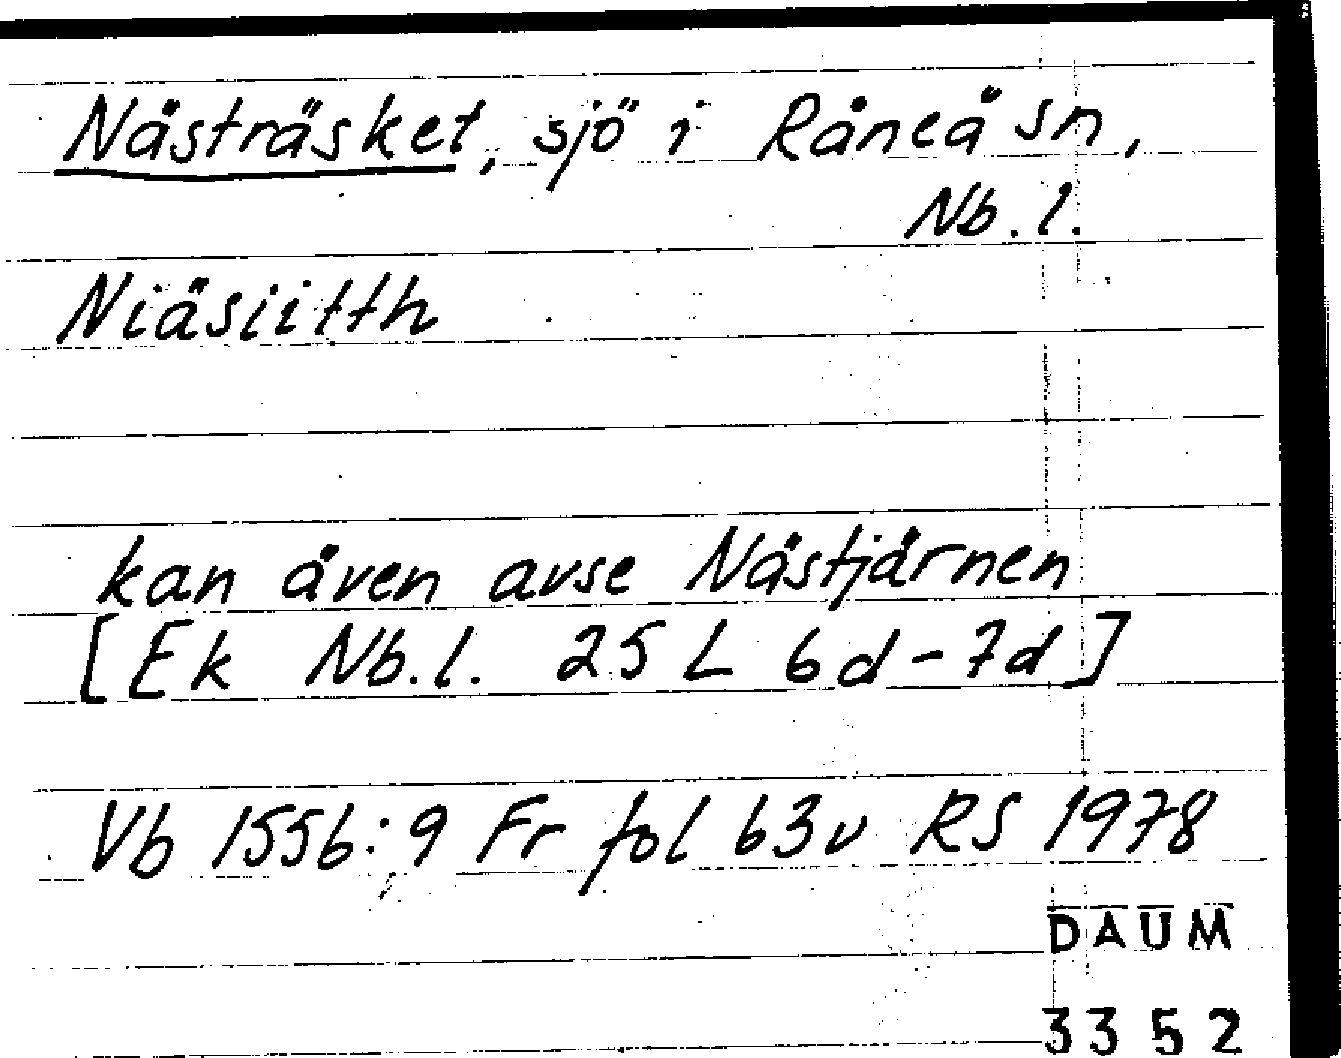 Nästräsket, sjö i Råneå sn,
Nb.l.
Niäsiitth
kan även avse Nästjärnen
[Ek Nb.l. 25 L 6d-7d]
Vb 1556:9 Fr fol 63v RS 1978
DAUM
3352